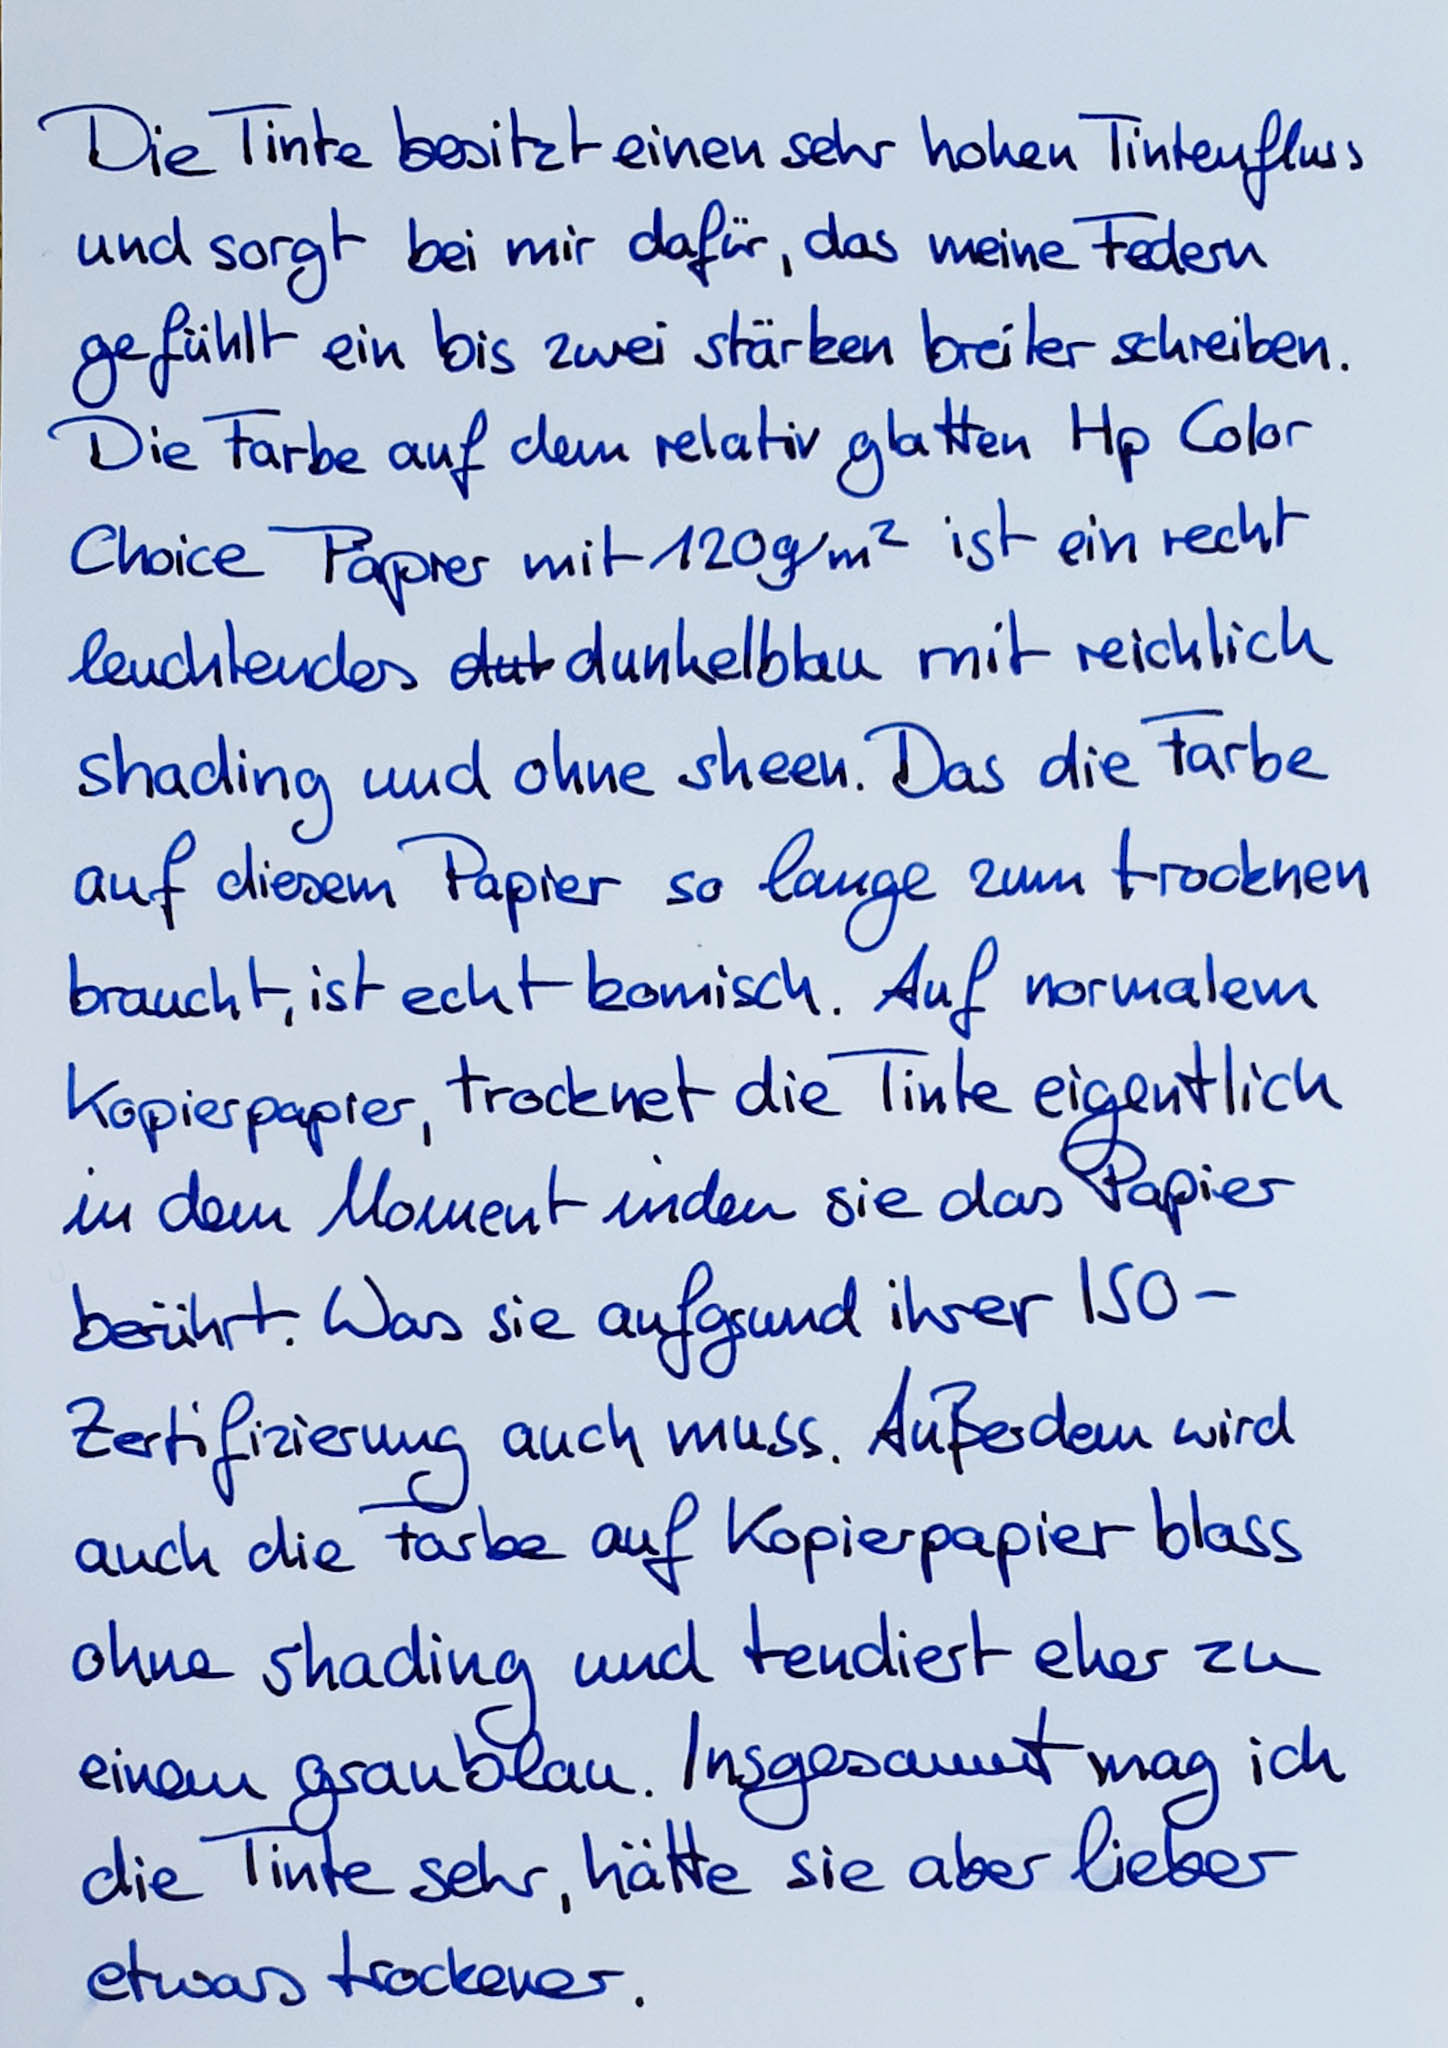 Die Tinte besitzt einen sehr hohen Tintenfluss
und sorgt bei mir dafür, das meine Federn
gefühlt ein bis zwei stärken breiter schreiben.
Die Farbe auf dem relativ glatten Hp Color
Choice Papier mit 120g/m² ist ein recht
leuchtendes dunkelblau mit reichlich
shading und ohne sheen. Das die Farbe
auf diesem Papier so lange zum trocknen
braucht, ist echt komisch. Auf normalem
Kopierpapier, trocknet die Tinte eigentlich
in dem Moment inden sie das Papier
berührt. Was sie aufgrund ihrer ISO-
Zertifizierung auch muss. Außerdem wird
auch die Farbe auf Kopierpapier blass
ohne shading und tendiert eher zu
einem graublau. Insgesamt mag ich
die Tinte sehr, hätte sie aber lieber
etwas trockener.